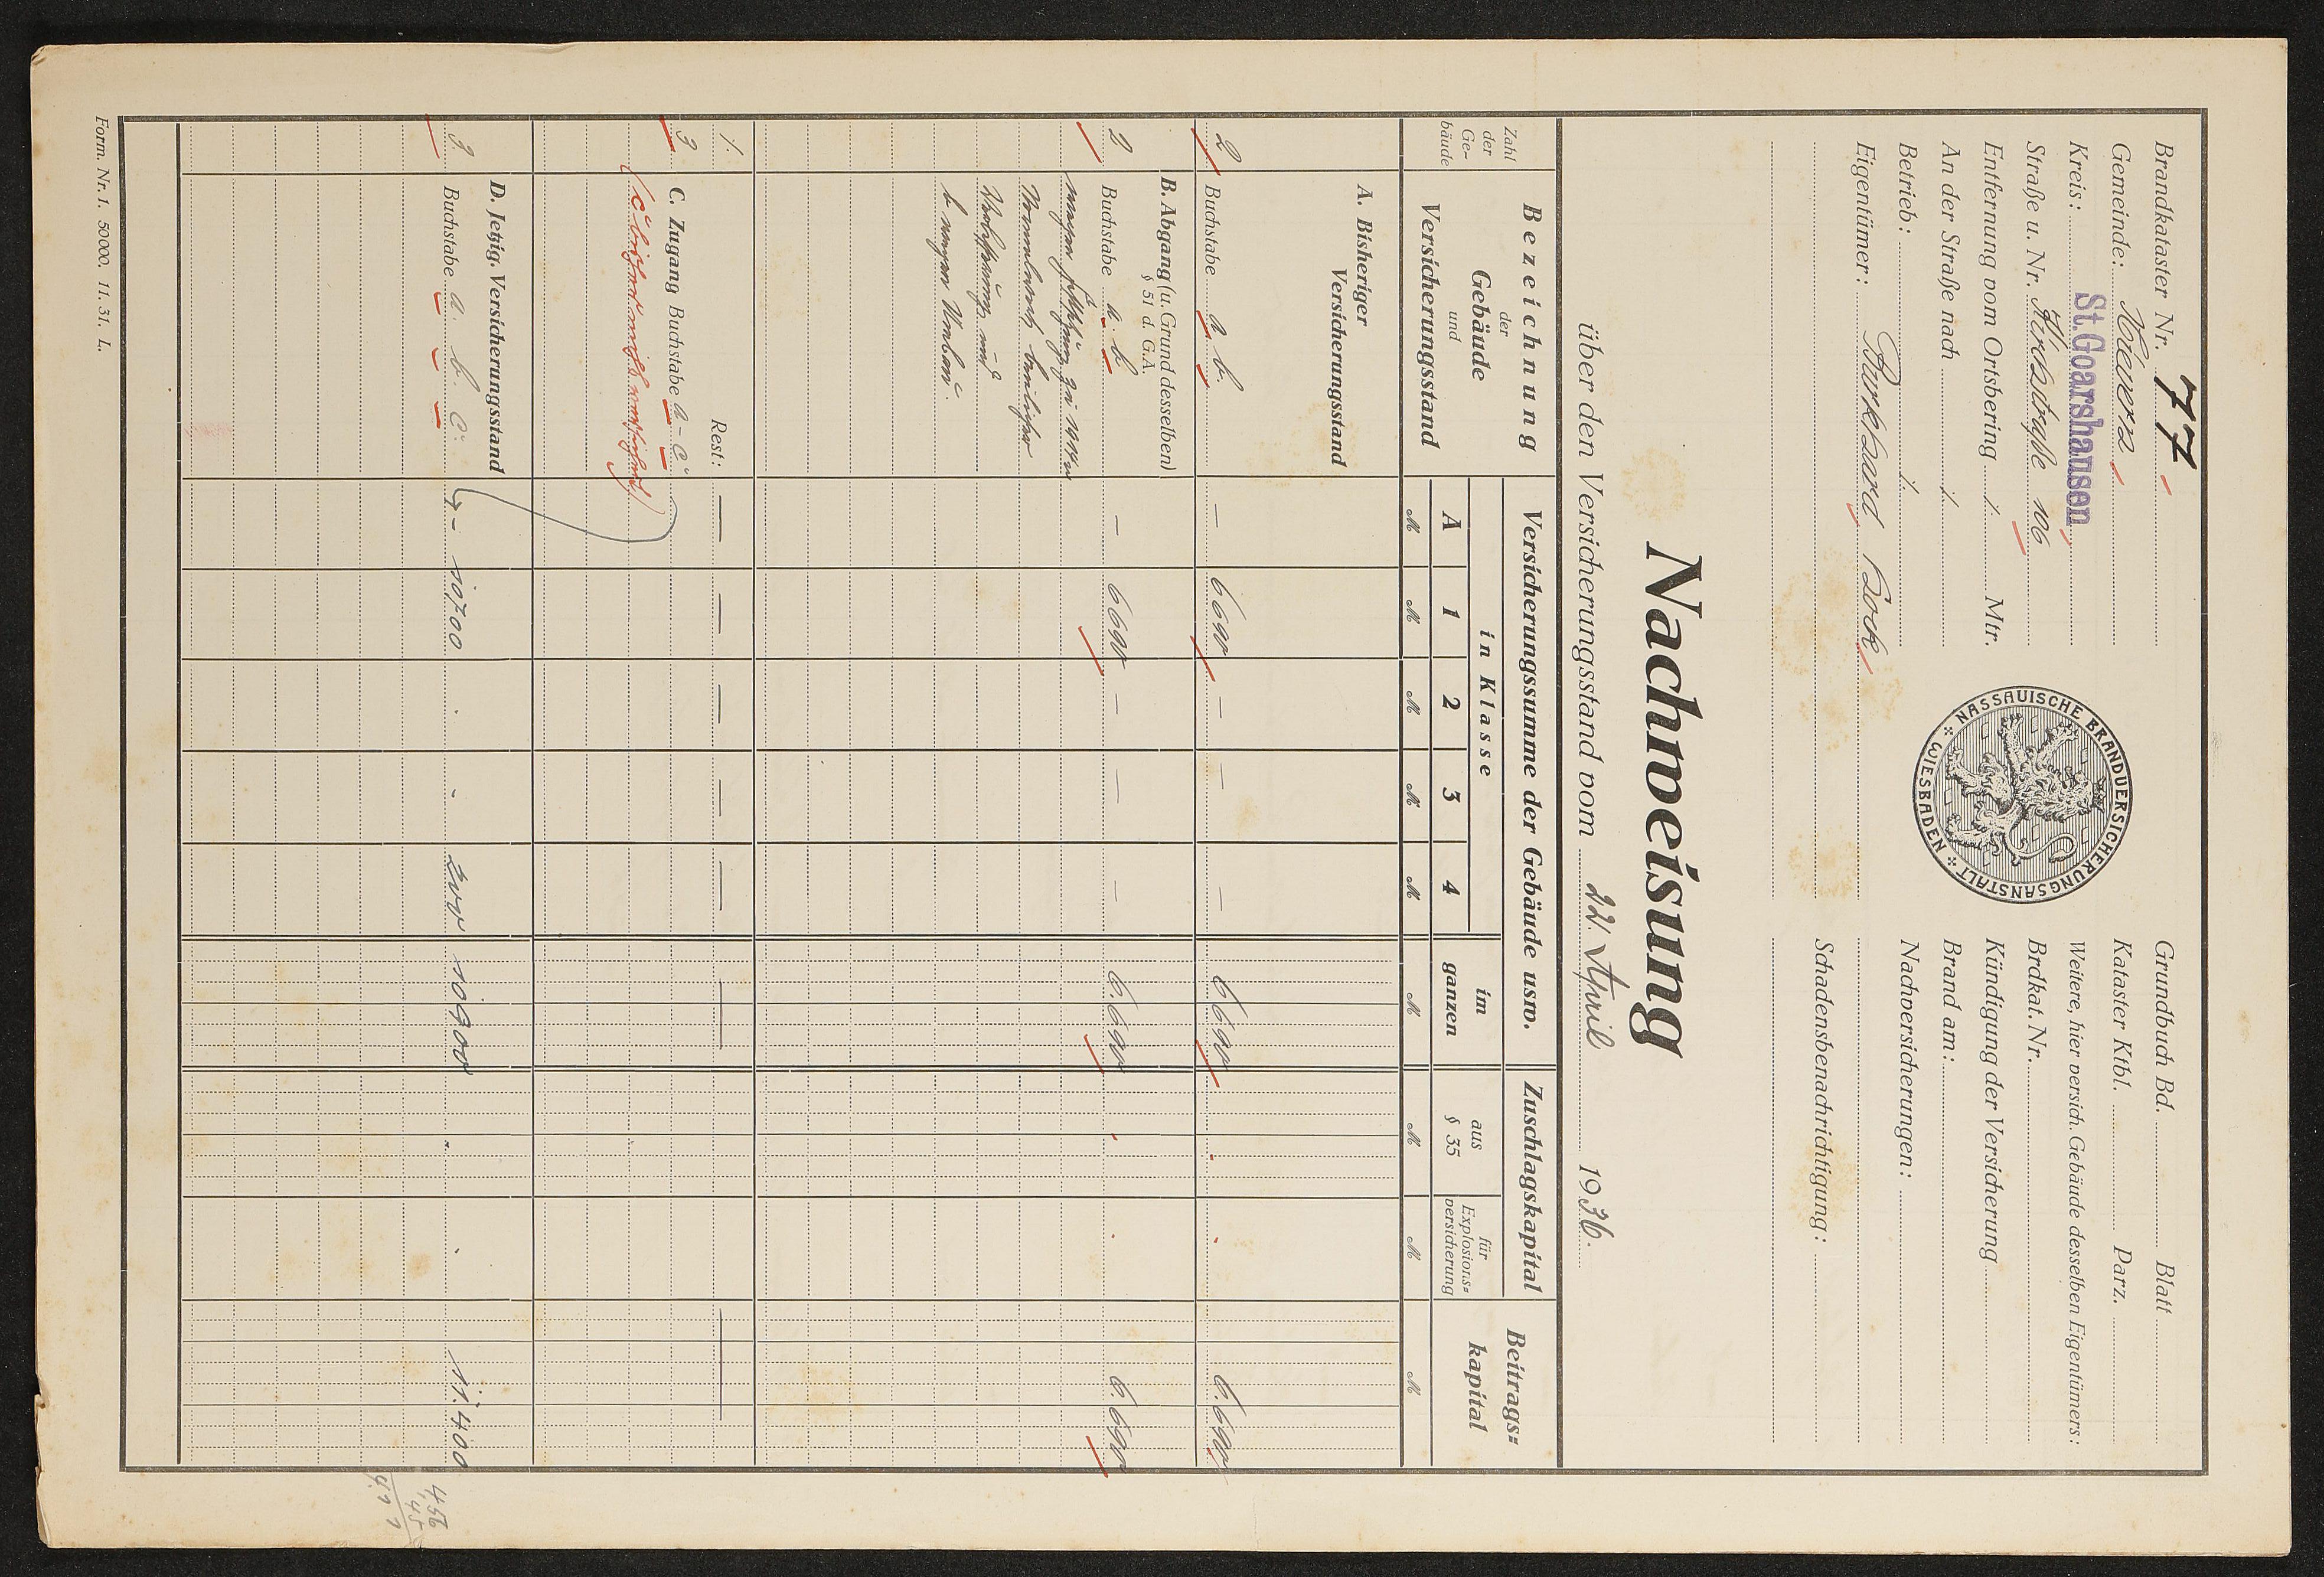 Brandkataster Nr. 77
Gemeinde:
Kreis: St. Goarshausen
Straße u. Nr. 106
Entfernung vom Ortsbering ./. Mtr.
An der Straße nach ./.
Betrieb: ./.
Eigentümer: Burkhard Bock
NASSAUISCHE BRANDVERSICHERUNGSANSTALT
WIESBADEN
Grundbuch Bd. Blatt
Kataster Ktbl. Parz.
Weitere, hier versich. Gebäude desselben Eigentümers:
Brdkat. Nr.
Kündigung der Versicherung
Brand am:
Nachversicherungen:
Schadensbenachrichtigung:
Nachweisung
über den Versicherungsstand vom 22. April 1936.
Zahl der Ge-bäude
Bezeichnung der Gebäude und Versicherungsstand
Versicherungssumme der Gebäude usw.
in Klasse
A 1 2 3 4
im ganzen
Zuschlagskapital
aus § 35
für Explosions-versicherung
Beitrags-kapital
M M M M M M M M M
A. Bisheriger Versicherungsstand
2 Buchstabe a b. — 6690 — — — 6690 . . 6.690
B. Abgang (u. Grund desselben)
§ 51 d. G.A.
2 Buchstabe a. b. — 6690 — — — 6.690 . . 6.690
wegen
b wegen Umbau.
./. Rest: — — — — — — —
3 C. Zugang Buchstabe a - c
D. Jetzig. Versicherungsstand
3. Buchstabe a. b. c. 10700 . . 200 10900 . . 11.400
456
Form. Nr. 1. 50000. 11. 31. L.